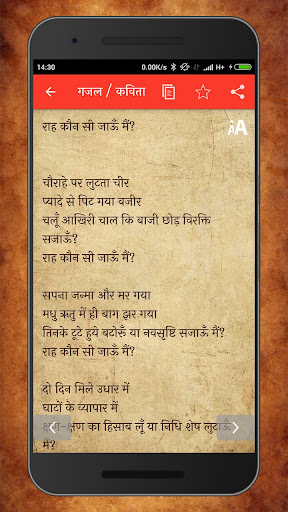 14:30
0.00K/s
H+
गजल / कविता
AA
राह कौन सी जाऊँ मैं?
चौराहे पर लुटता चीर
प्यादे से पिट गया वजीर
चलूँ आखिरी चाल कि बाजी छोड़ विरक्ति
सजाऊँ?
राह कौन सी जाऊँ मैं?
सपना जन्मा और मर गया
मधु ऋतु में ही बाग झर गया
तिनके टूटे हुये बटोरुँ या नवसृष्टि सजाऊँ मैं?
राह कौन सी जाऊँ मैं?
दो दिन मिले उधार में
घाटों के व्यापार में
क्षण-क्षण का हिसाब लूँ या निधि शेष लुटाऊँ
मैं?